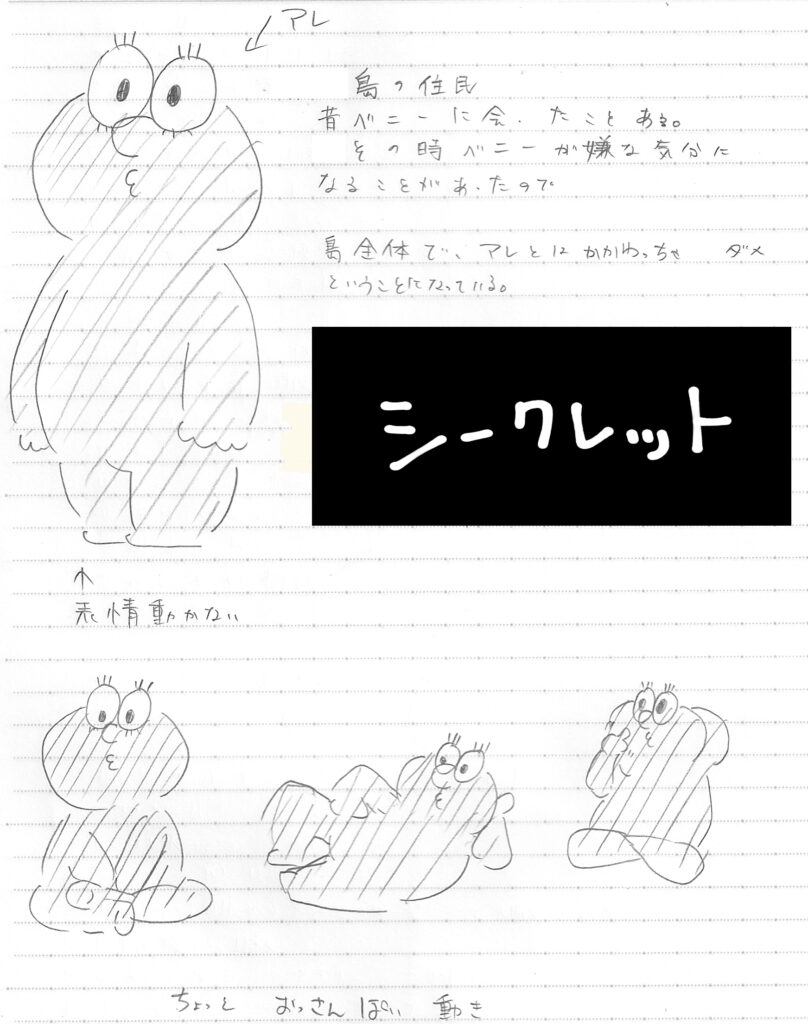 アレ
島の住民
昔ベニーに会ったことある。
その時ベニーが嫌な気分に
なることがあったので
島全体で、アレとはかかわっちゃ ダメ
ということになっている。
シークレット
表情動かない
ちょっと おっさんぽい 動き